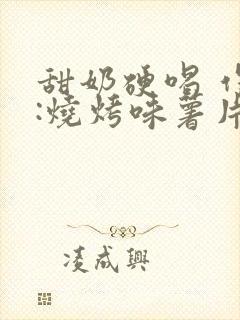 甜奶硬唱
:燒烤味薯片
凌成興